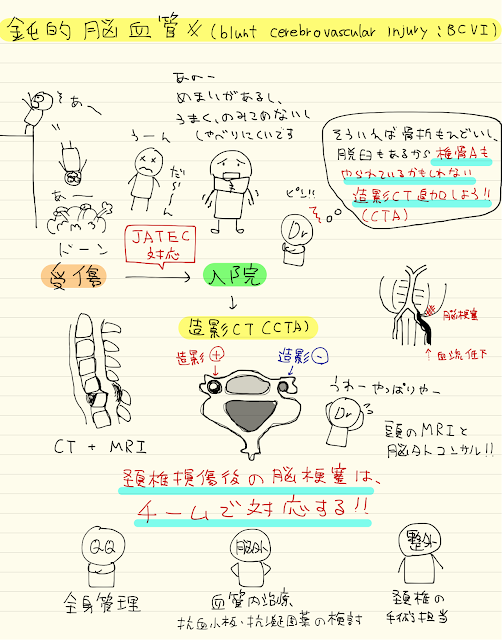 鈍的脳血管メ(blunt cerebrovascular injury:BCVI)
あ〜
あ〜
ドーン
うーん
だらーん
あのー
めまいがあるし、
うまく、のみこめないし
しゃべりにくいです
ピン!!
Dr
そういえば骨折もひどいし、
脱臼もあるから椎骨Aも
やられているかもしれない
造影CT追加しよう!!
(CTA)
受傷
JATEC
対応
入院
造影CT(CTA)
造影+
造影-
脳梗塞
↑血流低下
CT + MRI
うわーやっぱりやー
Dr
頭のMRIと
脳外コンサル!!
頚椎損傷後の脳梗塞は、
チームで対応する!!
QQ
全身管理
脳外
血管内治療、
抗血小板・抗凝固薬の検討
整外
頚椎の
手術担当